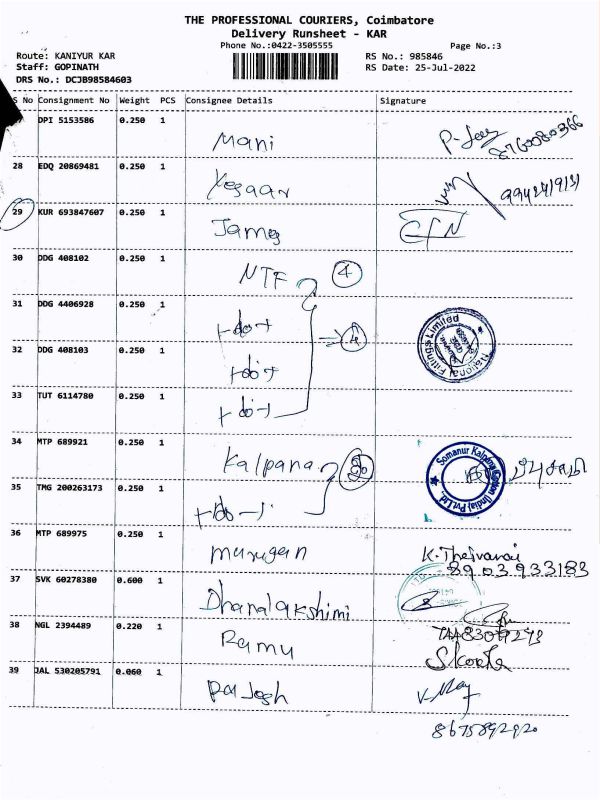 THE PROFESSIONAL COURIERS, Coimbatore
Delivery Runsheet - KAR
Phone No.:0422-3505555 Page No.:3
Route: KANIYUR KAR RS No.: 985846
Staff: GOPINATH RS Date: 25-Jul-2022
DRS No.: DCJB98584603
S No Consignment No Weight PCS Consignee Details Signature
DPI 5153586 0.250 1 Mani 8760080366
28 EDQ 20869481 0.250 1
29 KUR 693847607 0.250 1 James
30 DDG 408102 0.250 1 NTF 4
31 DDG 4406928 0.250 1 -do-
National Fittings Limited
32 DDG 408103 0.250 1 -do-
33 TUT 6114780 0.250 1 -do-
34 MTP 689921 0.250 1 Kalpana
Somanur Kalpana Cotton (India) Pvt.Ltd.
35 TMG 200263173 0.250 1 -do-
36 MTP 689975 0.250 1 Murugan K. Theivanai
8903933183
37 SVK 60278380 0.600 1 Dhanalakshimi
38 NGL 2394489 0.220 1 Ramu
39 JAL 530205791 0.060 1 Rajesh
8675892920